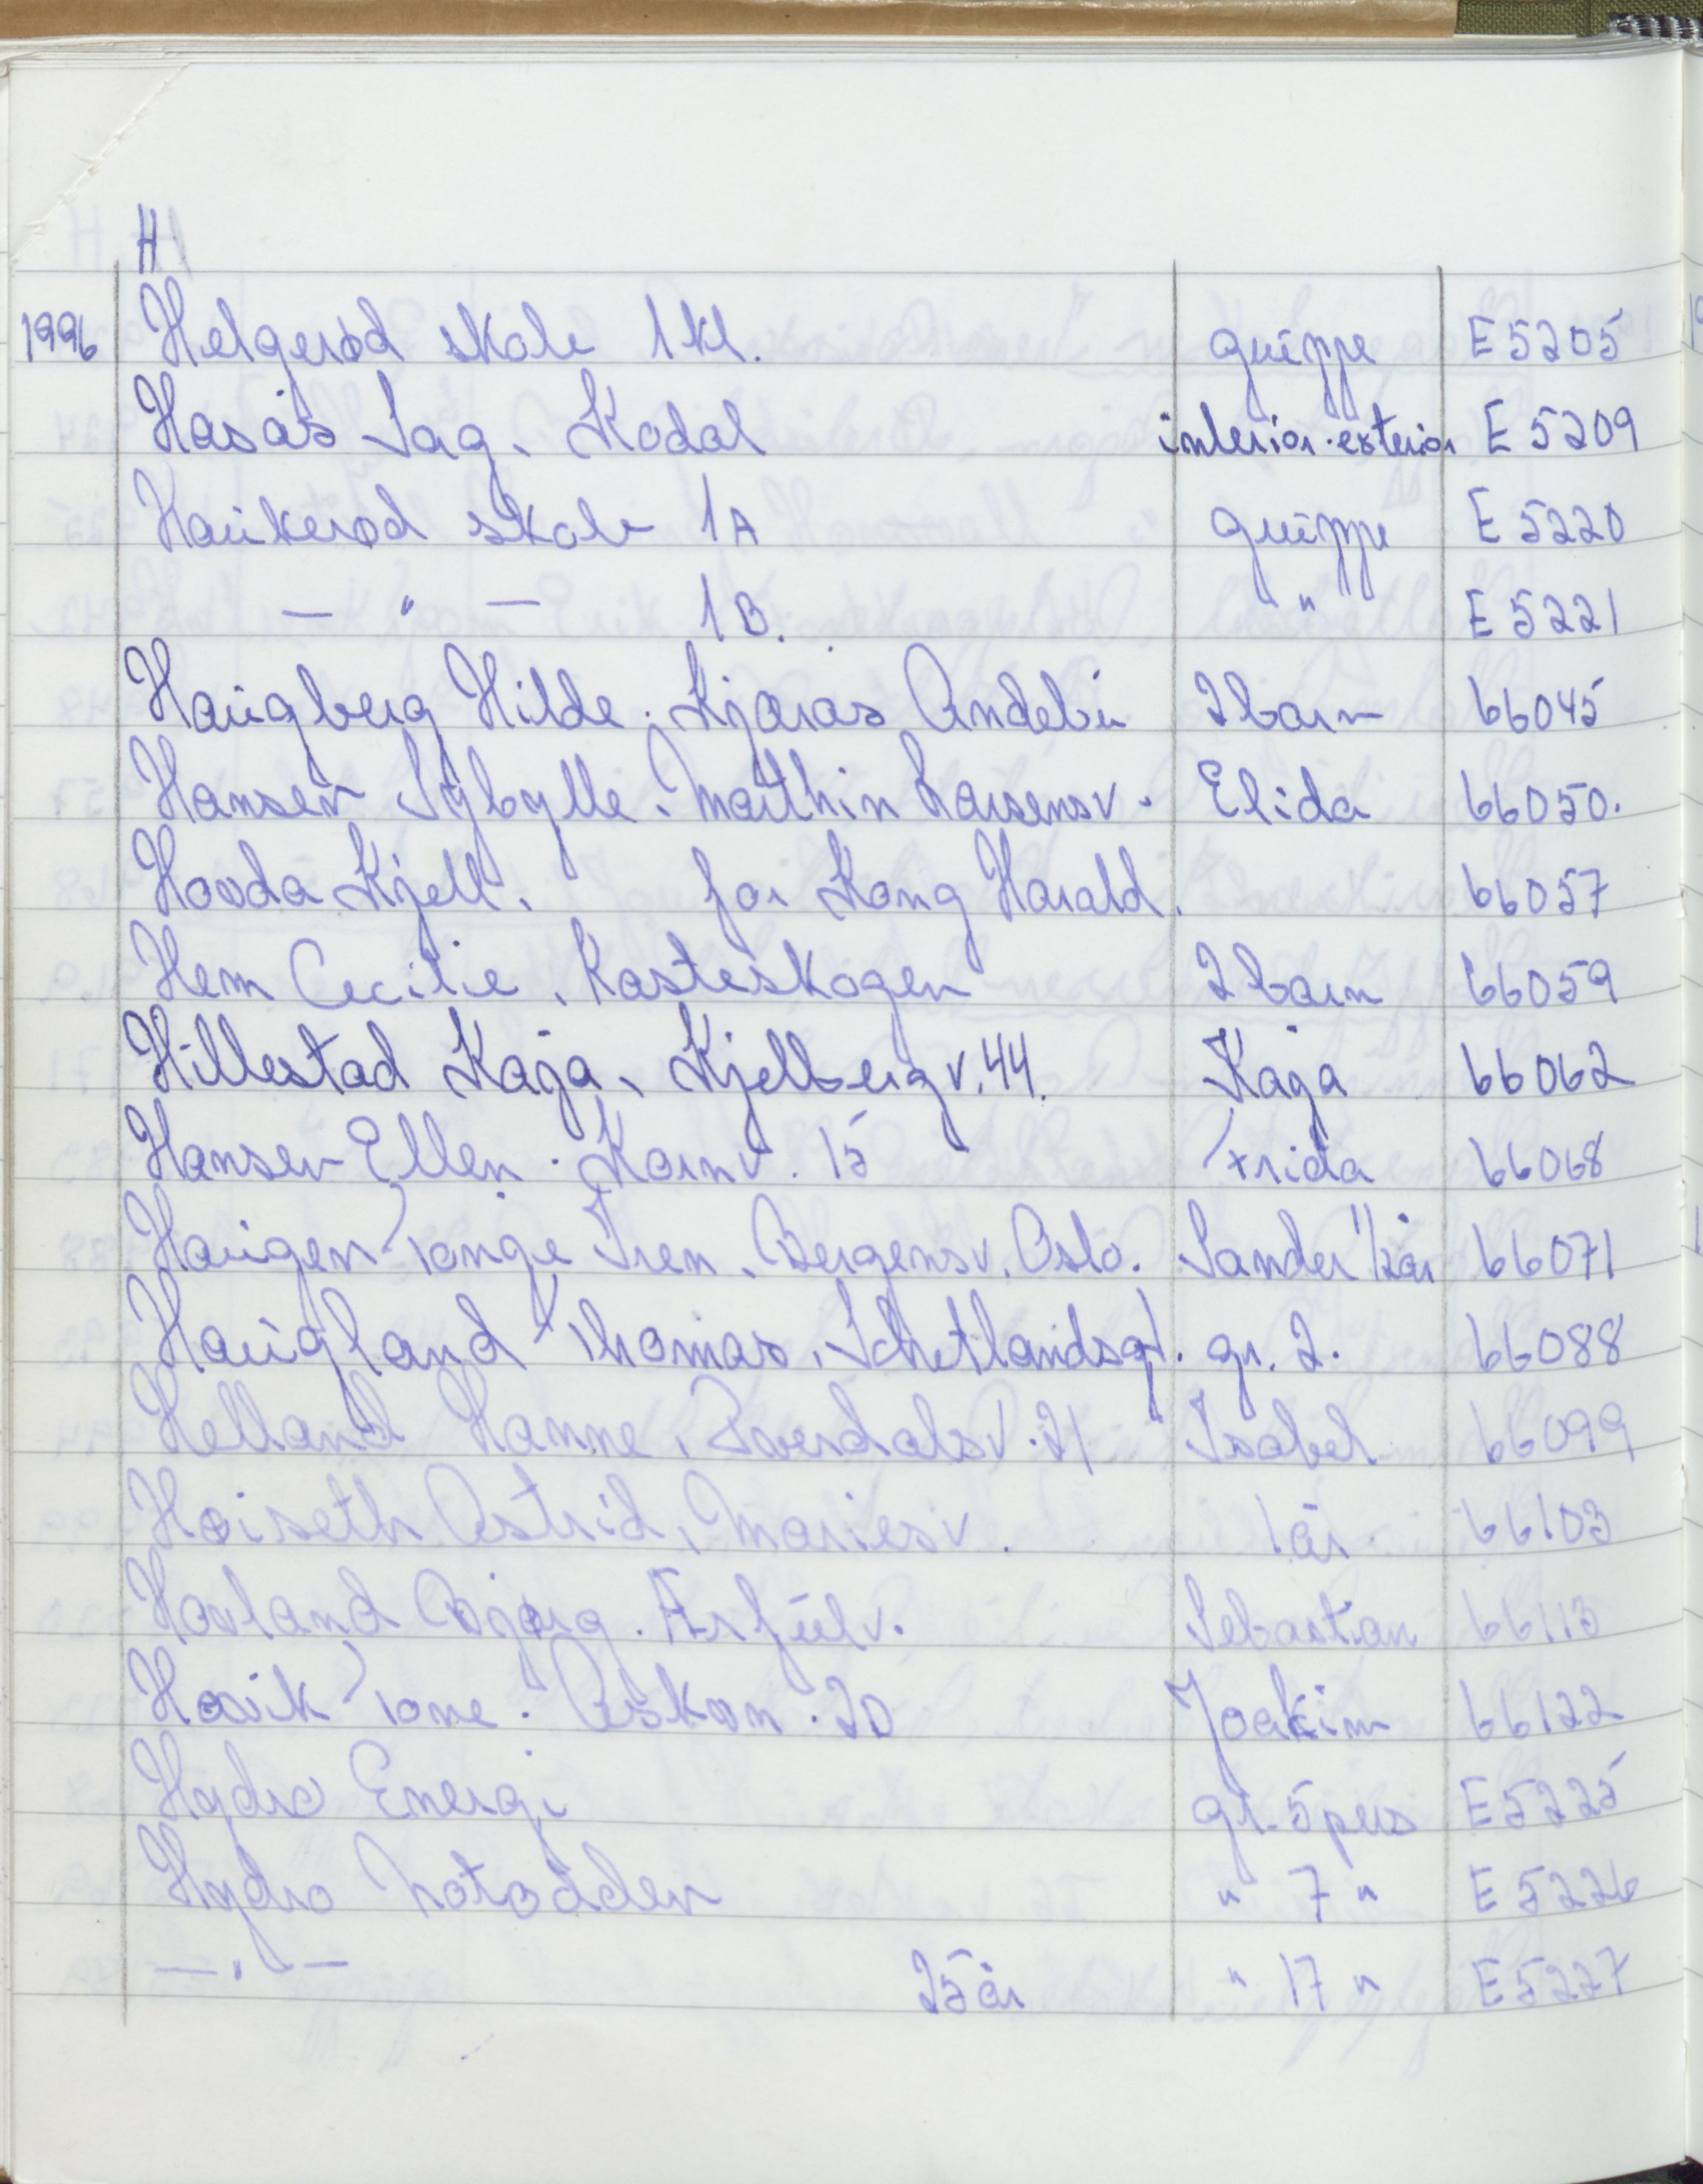 H
1996 Helgerød skole 1 kl. gruppe E 5205
Hasås Sag, Kodal interiør-exteriør E 5209
Haukerød skole 1A gruppe E 5220
— " — 1B. " E 5221
Haugberg Hilde. Kjæras Andebu 2 barn 66045
Hansen Sybylle. Marthin Larsensv. Elida 66050.
Hovda Kjell. for Kong Harald. 66057
Hem Cecilie, Rasteskogen 2 barn 66059
Hillestad Kaja, Kjellbergv. 44. Kaja 66062
Hansen Ellen. Kornv. 15 Frida 66068
Haugen Tonge Iren. Bergensv. Oslo. Sander 1/2 år 66071
Haugland Thomas, Schetlandsgt. gr. 2. 66088
Helland Hanne, Dverdalsv. 21 Isabel 66099
Høiseth Astrid, Mariesv. 1 år. 66103
Havland Bjørg. Årfuglv. Sebastian 66113
Høvik Tone. Askvn. 20 Joakim 66122
Hydro Energi gr. 5 pers E 5225
Hydro Notodden " 7 " E 5226
— " — 25 år " 17 " E 5227